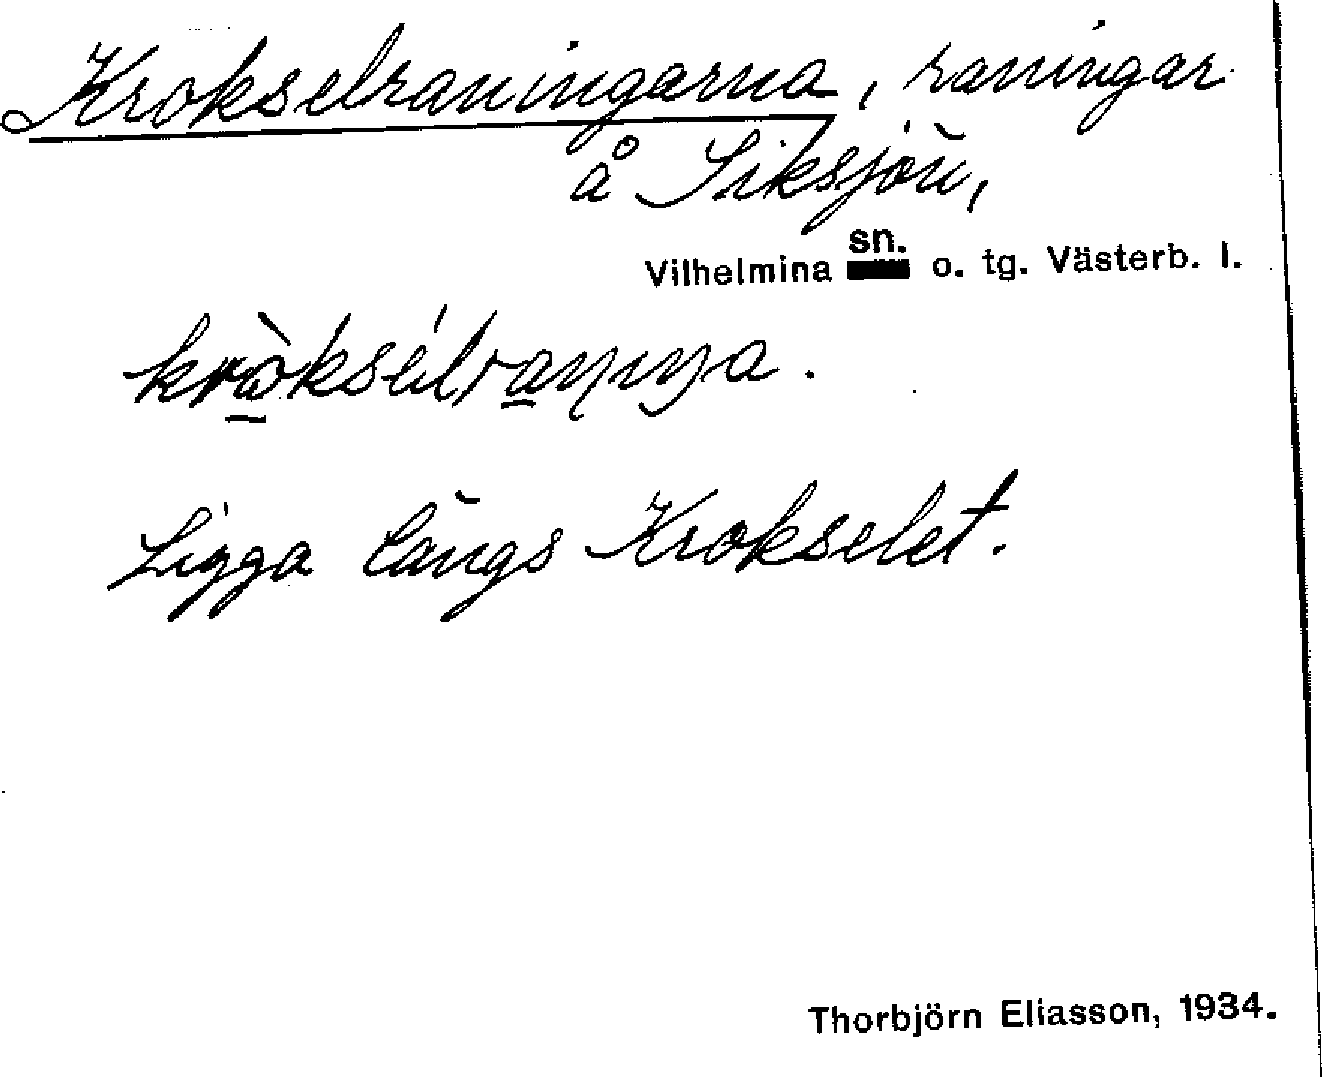 Krokselraningarna, raningar
å Siksjön,
Vilhelmina sn. o. tg. Västerb. l.
kròksélraŋiŋa.
Ligga längs Krokselet.
Thorbjörn Eliasson, 1934.